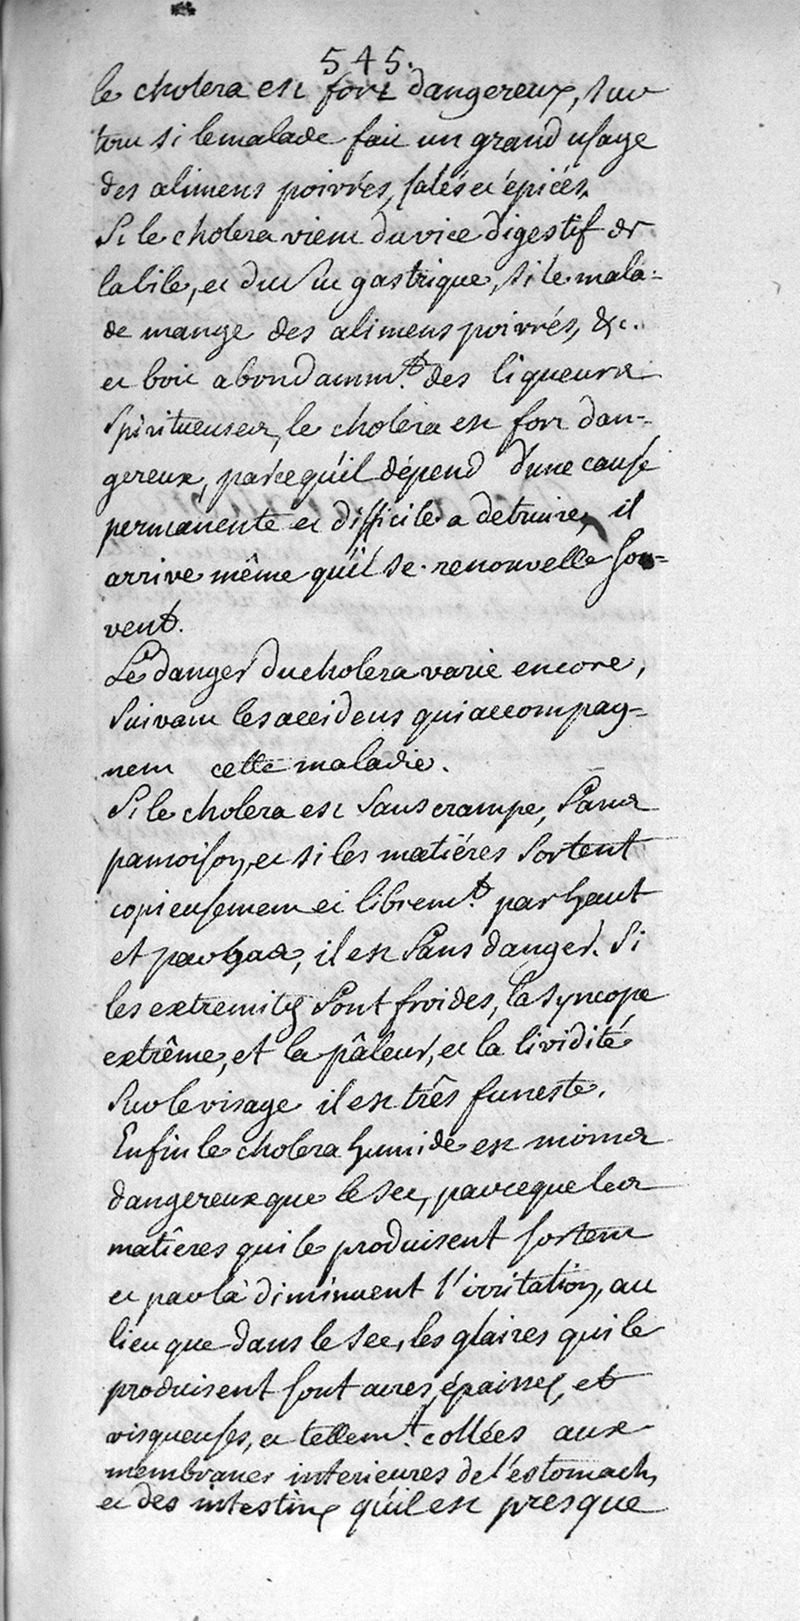 545.
le cholera est fort dangereux, sur
tout si le malade fait un grand usage
des alimens poivrés, salés et épicés.
Si le cholera vient du vice digestif de
la bile, et du suc gastrique, si le mala=
de mange des alimens poivrés, &c.
et boit abondamm.t des liqueurs
spiritueuses, le choléra est fort dan=
gereux, parcequ'il dépend d'une cause
permanente et difficile a detruire, il
arrive même qu'il se renouvelle sou=
vent.
Le danger du cholera varie encore,
suivant les accidens qui accompag=
nent cette maladie.
Si le cholera est sans crampe, sans
pamoison, et si les matiéres sortent
copieusement et librem.t par haut
et par bas, il est sans danger. Si
les extremités sont froides, la syncope
extrême, et la pâleur, et la lividité
sur le visage il est três funeste.
Enfin le cholera humide est moins
dangereux que le sec, parceque les
matîeres qui le produisent sortent
et par là diminuent l'irritation, au
lieu que dans le sec, les glaires qui le
produisent sont acres, épaisses, et
visqueuses, et tellem.t collées aux
membranes interieures de l'estomach,
et des intestins qu'il est presque